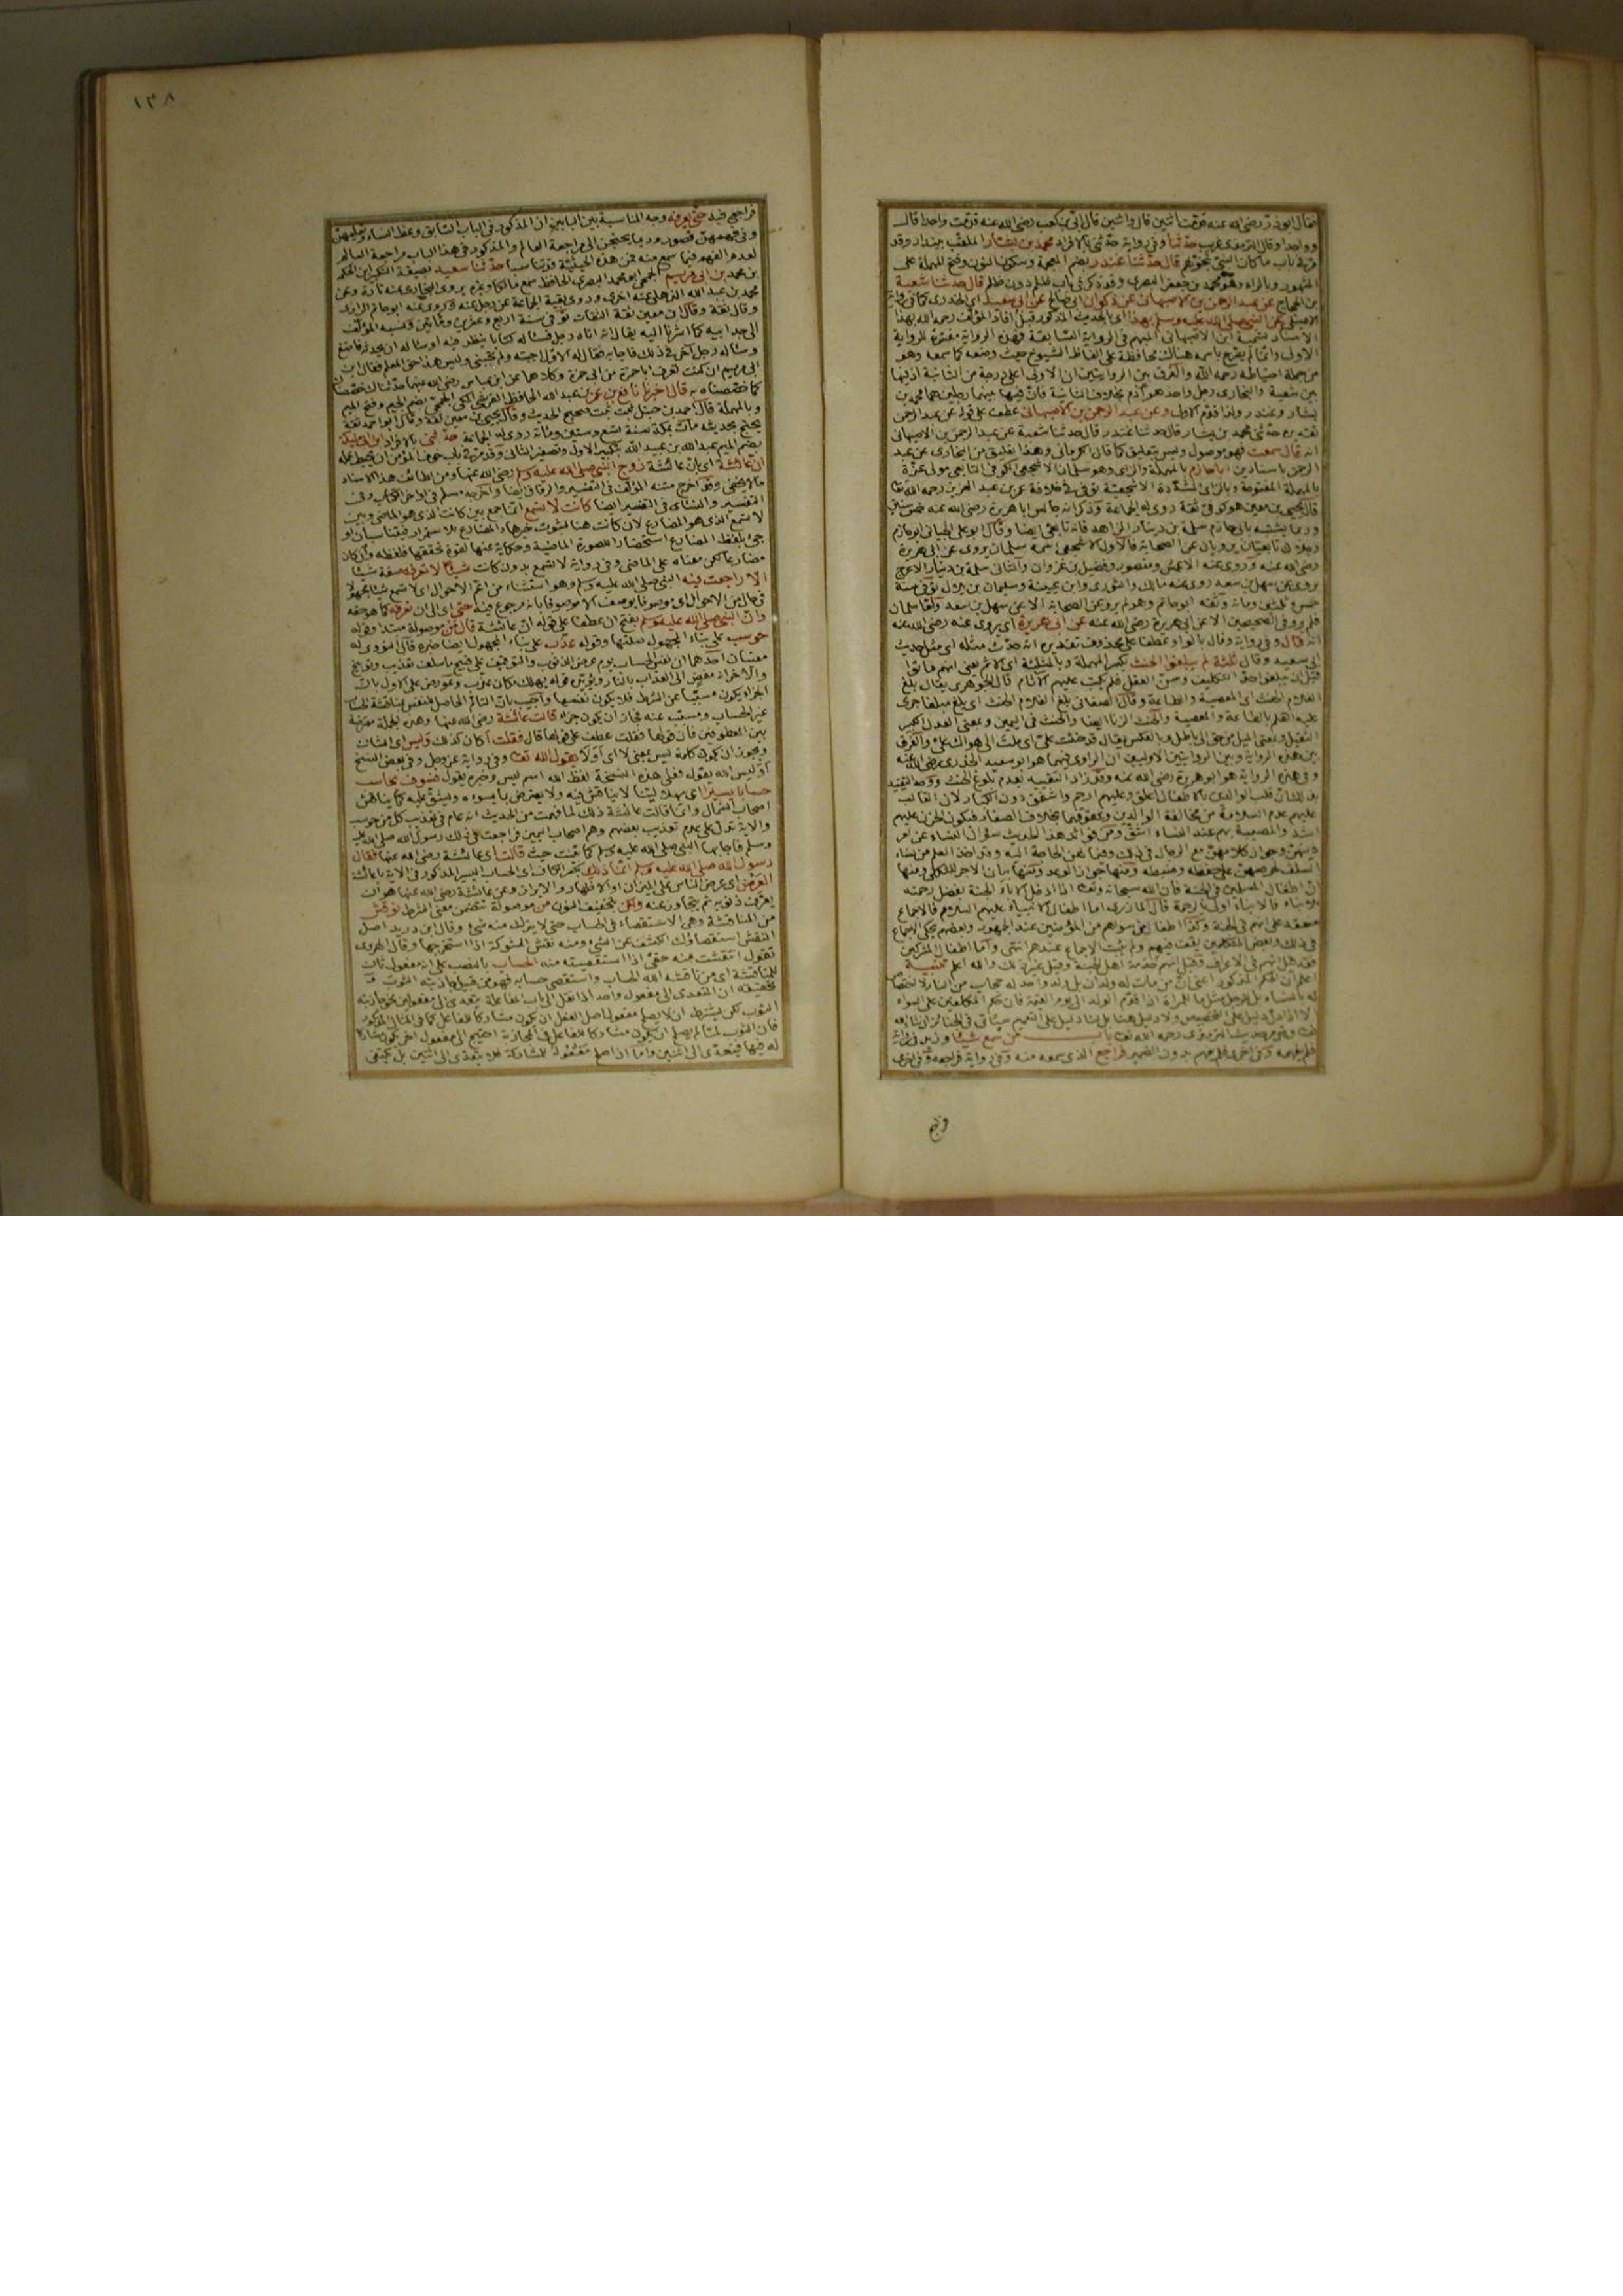 فقال ابو ذر رضى الله عنه قدمت اثنين قال واثنين قال ابى بن كعب رضى الله عنه قدمت واحدا قال
وواحدا وقال الترمذى غريب حدثنا وفى رواية حدثنى بالافراد محمد بن بشار الملقب ببندار وقد
مر فى باب ما كان النبى يتخولهم قال حدثنا غندر بضم المعجمة وسكون النون وفتح المهملة على
المشهور وبالراء وهو محمد بن جعفر البصرى وقد ذكر فى باب ظلم دون ظلم قال حدثنا شعبة
بن الحجاج عن عبد الرحمن بن الاصبهانى عن ذكوان ابى صالح عن ابى سعيد اى الخدرى كما فى رواية
الاصيلى عن النبى صلى الله عليه وسلم بهذا اى بالحديث المذكور قبل افاد المؤلف رحمه الله بهذا
الاسناد تسمية ابن الاصبهانى المبهم فى الرواية السابقة فهذه الرواية مفسرة للرواية
الاولى وانما لم يصرح باسمه هناك محافظة على الفاظ الشيوخ حيث وضعه كما سمعه وهو
من جملة احتياطه رحمه الله والفرق بين الروايتين ان الاولى اعلى درجة من الثانية اذ بينها
بين شعبة والبخارى رجل واحد هو آدم بخلاف الثانية فان فيها بينهما رجلين هما محمد بن
بشار وغندر ولذا قدم الاول وعن عبد الرحمن بن الاصبهانى عطف على قوله عن عبد الرحمن
حدثنى محمد بن بشار قال حدثنا غندر قال حدثنا شعبة عن عبد الرحمن بن الاصبهانى
انه قال سمعت فهو موصول وليس بتعليق كما قال الكرمانى وهذا تعليق من البخارى عن عبد
الرحمن باسناد بن ابا حازم بالمهملة والزاى وهو سلمان الاشجعى الكوفى التابعى مولى عزة
بالمهملة المفتوحة وبالزاى المشددة الاشجعية توفى فى خلافة عمر بن عبد العزيز رحمه الله تعا
قال يحيى بن معين هو كوفى ثقة روى له الجماعة وذكر انه جالس ابا هريرة رضى الله عنه خمس سنين
وربما يشتبه بابى حازم سلمة بن دينار الزاهد فانه تابعى ايضا وقال ابو على الجيانى ابو حازم
رجلان تابعيان يرويان عن الصحابة فالاول الاشجعى اسمه سلمان يروى عن ابى هريرة
رضى الله عنه وروى عنه الاعمش ومنصور وفضيل بن غزوان والثانى سلمة بن دينار الاعرج
يروى عن سهل بن سعد روى عنه مالك والثورى وابن عيينة وسليمان بن بلال توفى سنة
خمس وثلثين ومائة وثقه ابو حاتم وهو لم يرو عن الصحابة الا عن سهل بن سعد واما سلمان
فلم يرو فى الصحيحين الا عن ابى هريرة رضى الله عنه عن ابى هريرة اى يروى عنه رضى الله عنه
انه قال وفى رواية وقال بالواو عطفا على محذوف تقديره انه حدث مثله اى مثل حديث
ابى سعيد وقال ثلثة لم يبلغوا الحنث بكسر المهملة وبالمثلثة اى الاثم يعنى انهم ماتوا
قبل ان يبلغوا حد التكليف وسن العقل فلم يكتب عليهم الآثام قال الجوهرى يقال بلغ
الغلام الحنث اى المعصية والطاعة وقال الصغانى بلغ الغلام الحنث اى بلغ مبلغا جرى
عليه القلم بالطاعة والمعصية والحنث الزنا ايضا والحنث فى اليمين وبمعنى العدل الكبير
الثقيل وبمعنى الميل من حق الى باطل وبالعكس يقال قد حنثت على اى ملت الى هواك على والفرق
بين هذه الرواية وبين الروايتين الاوليين ان الراوى فيهما هو ابو سعيد الخدرى رضى الله عنه
وفى هذه الرواية هو ابو هريرة رضى الله عنه وقد زاد التقييد بعدم بلوغ الحنث ووجه التقييد
بذلك ان قلب الوالدين بالاطفال اعلق وعليهم ارحم واشفق دون الكبار لان الغالب
عليهم عدم السلامة من مخالفة الوالدين وعقوقهما بخلاف الصغار فيكون الحزن عليهم
اشد والمصيبة بهم عند النساء اشق ومن فوائد هذا الحديث سؤال النساء عن امر
دينهن وجواز كلامهن مع الرجال فى ذلك وفيما لهن الحاجة اليه وقد اخذ العلم من نساء
السلف لحرصهن على حفظه وضبطه ومنها جواز الوعد ومنها بيان الاجر للثكلى ومنها
ان اطفال المسلمين فى الجنة فان الله سبحانه وتعا اذا ادخل الاباء الجنة بفضل رحمته
للابناء فالابناء اولى بالرحمة قال المازرى اما اطفال الانبياء عليهم السلام فالاجماع
متحقق على انهم فى الجنة وكذا اطفال من سواهم من المؤمنين عند الجمهور وبعضهم يحكى الاجماع
فى ذلك وبعض المتكلمين يقف فيهم ولم يثبت الاجماع عندهم انتهى واما اطفال المشركين
فقد قيل انهم فى الاعراف وقيل انهم خدمة اهل الجنة وقيل غير ذلك والله اعلم تتمة
اعلم ان الحكم المذكور اعنى ان من مات له ولدان بل ولد واحد له حجاب من النار لا يختص
له بالنساء بل الرجل مثل ما للمراة اذا قدم الولد الى يوم القيمة فان حكم المكلفين على السواء
الا اذا دل دليل على التخصيص ولا دليل هنا بل هنا دليل على التعميم سيأتى فى الجنائز ان شاء الله
تعا وقد مر حديث الترمذى رحمه الله تعا باب من سمع شيئا وزيد فى رواية
فلم يفهمه وفى اخرى فلم يفهم بدون الضمير فراجع الذى سمعه منه وفى رواية فراجعه وفى اخرى
فراجع فيه حتى يعرفه وجه المناسبة بين البابين ان المذكور فى الباب السابق وعظ النساء وتعليمهن
وفى فهمهن قصور وربما يحتجن الى مراجعة العالم والمذكور فى هذا الباب مراجعة العالم
لعدم الفهم فيما سمع منه فمن هذه الحيثية تناسبا حدثنا سعيد بصيغة التكبير ابن الحكم
بن محمد بن ابى مريم الجمحى ابو محمد البصرى الحافظ سمع مالكا وغيره يروى البخارى عنه تارة وعن
محمد بن عبد الله الذهلى عنه اخرى وروى بقية الجماعة عن رجل عنه وروى عنه ابو حاتم الرازى
وقال ثقة وقال ابن معين ثقة الثقات توفى سنة اربع وعشرين ومائتين ونسبه المؤلف
الى جد ابيه كما اشرنا اليه يقال انه اتاه رجل فسأله كتابا ينظر فيه او سأله ان يحدثه فامتنع
وسأله رجل آخر فى ذلك فاجابه فقال له الاول اجبته ولم تجبنى وليس هذا حق العلم فقال ابن
ابى مريم ان كنت تعرف ابا حمزة من ابى جمرة وكلاهما عن ابن عباس رضى الله عنهما حدثناك وخصصناك
كما خصصناه به قال اخبرنا نافع بن عمر بن عبد الله الحافظ القرشى المكى الجمحى بضم الجيم وفتح الميم
وبالمهملة قال احمد بن حنبل ثبت ثبت صحيح الحديث وقال يحيى بن معين ثقة وقال ابو احمد ثقة
يحتج بحديثه مات بمكة سنة تسع وستين ومائة روى له الجماعة حدثنى بالافراد ابن ابى مليكة
بضم الميم عبد الله بن عبيد الله بتكبير الاول وتصغير الثانى وقد مر فى باب خوف المؤمن ان يحبط عمله
ان عائشة اى بان عائشة زوج النبى صلى الله عليه وسلم رضى الله عنها ومن لطائف هذا الاسناد
ما لا يخفى وقد اخرج متنه المؤلف فى التفسير والرقاق ايضا واخرجه مسلم فى اواخر الكتاب وفى
التفسير والنسائى فى التفسير ايضا كانت لا تسمع انما جمع بين كانت الذى هو الماضى وبين
لا تسمع الذى هو المضارع لان كانت هنا لثبوت خبرها والمضارع للاستمرار فيتناسبان او
جئ بلفظ المضارع استحضارا للصورة الماضية وحكاية عنها لقوة تحققها فلفظه وان كان
مضارعا لكن معناه على الماضى وفى رواية لا تسمع بدون كانت شيئا لا تعرفه صفة شيئا
الا راجعت فيه النبى صلى الله عليه وسلم وهو استثناء من اعم الاحوال اى لا تسمع شيئا مجهولا
فى حال من الاحوال اى موصوفا بوصف الا موصوفا بانه مرجوع فيه حتى اى الى ان تعرفه كما هو حقه
وان النبى صلى الله عليه وسلم بفتح ان عطفا على قوله ان عائشة قال من موصولة مبتدا وقوله
حوسب على بناء المجهول صلتها وقوله عذب على بناء المجهول ايضا خبره قال النووى له
معنيان احدهما ان نفس الحساب يوم عرض الذنوب والتوقيف على قبيح ما سلف تعذيب وتوبيخ
والآخر انه مفض الى العذاب بالنار ويؤيده قوله يهلك مكان عذب وعورض على الاول بان
الجزاء يكون مسببا عن الشرط فلا يكون نفسه واجيب بان التألم الحاصل للنفس بمناقشة الحساب
غير الحساب ومسبب عنه فجاز ان يكون جزاء قالت عائشة رضى الله عنها وهذه الجملة معترضة
بين المعطوفين فان قولها فقلت عطف على قولها قال فقلت أكان كذلك وليس اى الشان
ويجوز ان يكون كلمة ليس بمعنى لا اى أولا يقول الله تعا وفى رواية عز وجل وفى بعض النسخ
أوليس الله يقول فعلى هذه النسخة لفظ الله اسم ليس وخبره يقول فسوف يحاسب
حسابا يسيرا اى سهلا لينا لا يناقش فيه ولا يعترض بما يسوءه ويشق عليه كما يناقش
اصحاب الشمال وانما قالت عائشة ذلك لما فهمت من الحديث انه عام فى تعذيب كل من حوسب
والآية تدل على عدم تعذيب بعضهم وهم اصحاب اليمين فراجعت فى ذلك رسول الله صلى الله عليه
وسلم فاجابها النبى صلى الله عليه وسلم كما بينت حيث قالت اى عائشة رضى الله عنها فقال
رسول الله صلى الله عليه وسلم انما ذلك بكسر الكاف اى الحساب اليسير المذكور فى الآية يا عائشة
العرض اى عرض الناس على الميزان او الاظهار والابراز وعن عائشة رضى الله عنها هو ان
يعرف ذنوبه ثم يتجاوز عنه ولكن بتخفيف النون من موصولة تتضمن معنى الشرط نوقش
من المناقشة وهى الاستقصاء فى الحساب حتى لا يترك منه شئ وقال ابن دريد اصل
النقش استقصاؤك الكشف عن الشئ ومنه نقش الشوكة اذا استخرجها وقال الهروى
تقول انتقشت منه حقى اذا استقصيته منه الحساب بالنصب على انه مفعول ثان
للمناقشة اى من ناقشه الله الحساب واستقصى حسابه فهو من قبيل جاذبته الثوب
تحقيقه ان المتعدى الى مفعول واحد اذا نقل الى باب المفاعلة يتعدى الى مفعولين نحو جاذبته
الثوب لكن يشترط ان لا يصلح مفعول اصل الفعل ان يكون مشاركا للفاعل كما فى المثال المذكور
فان الثوب لما لم يصلح ان يكون مشاركا للفاعل فى المجاذبة احتيج الى مفعول آخر يكون مشاركا
له فيها فيتعدى الى اثنين واما اذا صلح مفعوله للمشاركة فلا يتعدى الى اثنين بل يكتفى
١٣٨